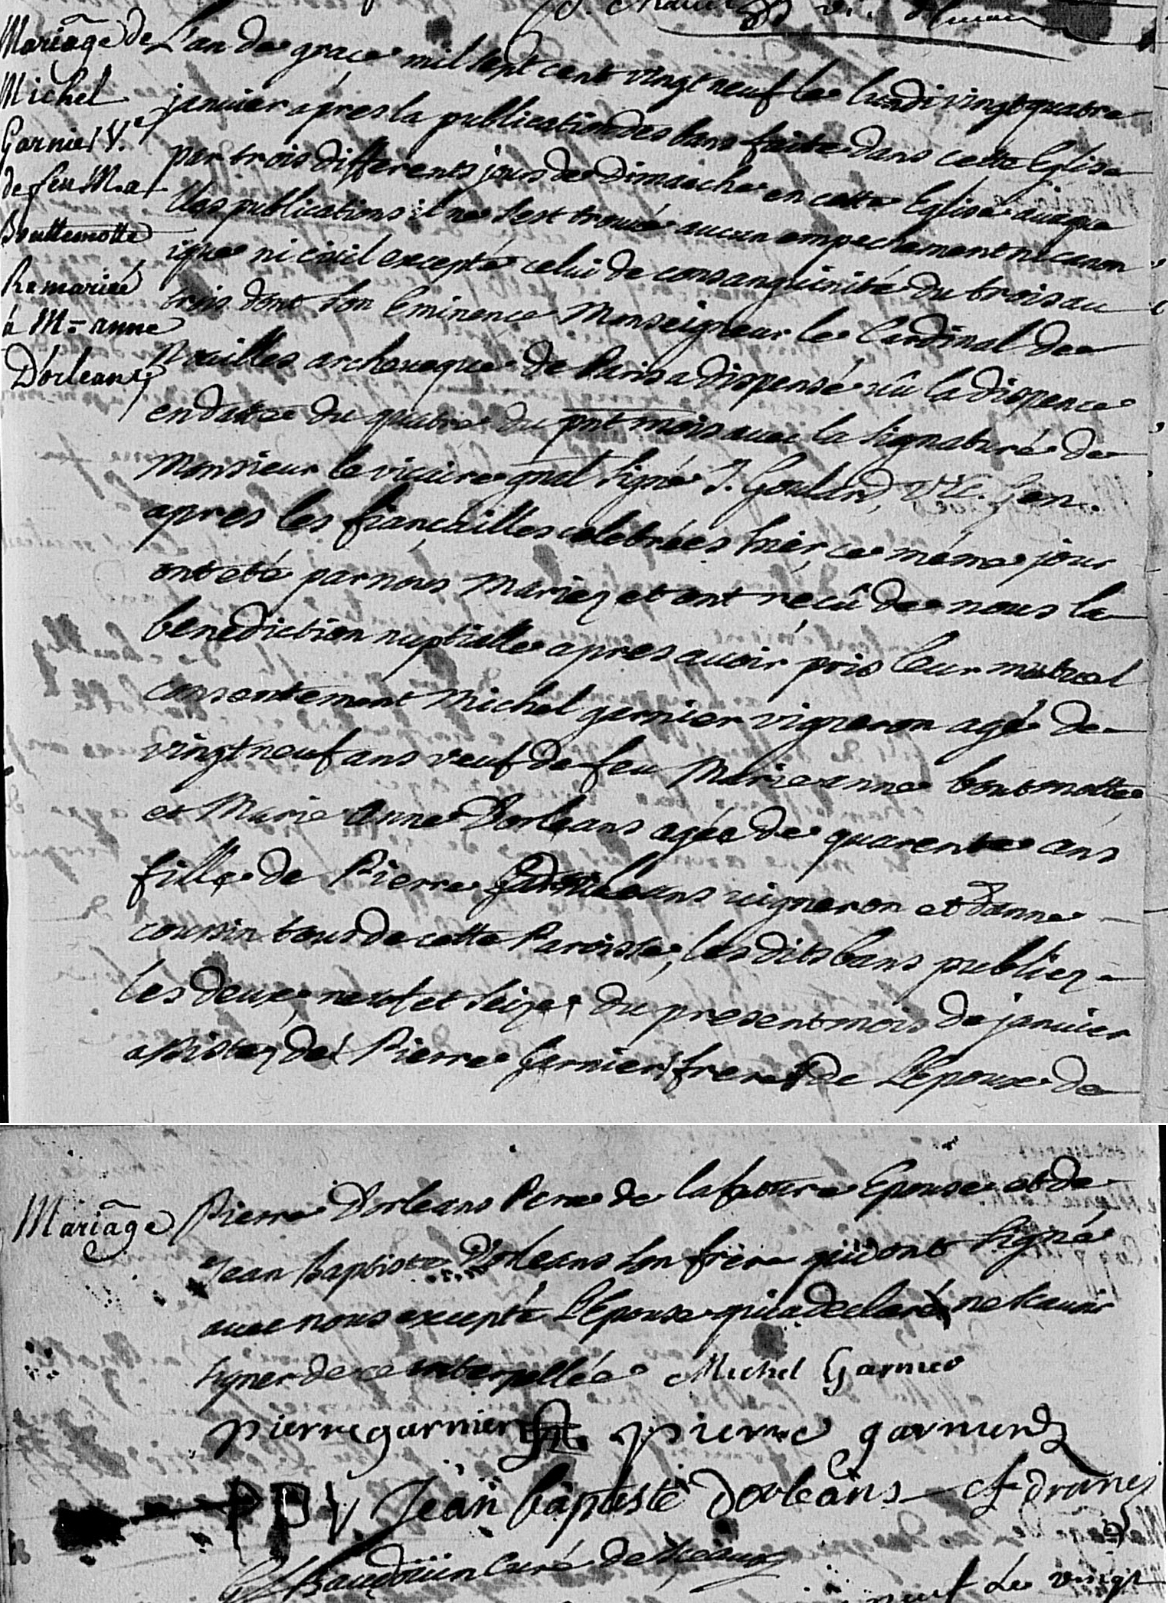 Mariage de
Michel
Garnier V.e
de feu M.a
Bouttemotte
Remariée
à M= anne
D'orleans
L'an de grace mil sept cent vingt neuf le lundi vingt quatre
janvier après la publication des bans faite dans cette Eglise
par trois differents jours de Dimanche en cette Eglise auxque
lles publications il ne s'est trouvé aucun empechement ni canon
ique ni civil excepté celui de consanguinité du trois au
trois dont son Eminence Monseigneur le Cardinal de
Noailles archeveque de Paris a dispensé vû la dispence
en datte du quatre du pnt mois avec la signature de
Monsieur le vicaire gnal signé J. Goulard, v. gen.
apres les fiançailles celebrées hier, ce même jour
ont eté par nous Mariez et ont reçû de nous la
benediction nuptialle apres avoir pris leur mutuel
consentement Michel garnier vigneron agé de
vingt neuf ans veuf de feu Marie anne boutmotte
et Marie Anne Dorleans agée de quarente ans
fille de Pierre Dorleans vigneron et d'anne
cousin tous de cette Paroisse, les dits bans publiez
les deux, neuf et seize du present mois de janvier
assistez de Pierre Garnier frere de L'epoux de
Mariage
Pierre Dorleans Pere de la future Epouse et de
Jean Baptiste Dorleans son frere qui ont signé
avec nous excepté L'Epouse qui a declaré ne scavoir
signer de ce interpellée Michel Garnier
pierre garnier pierre garnier
Jean baptiste dorleans
Baudoüin Curé de Sceaux
neuf Le vingt